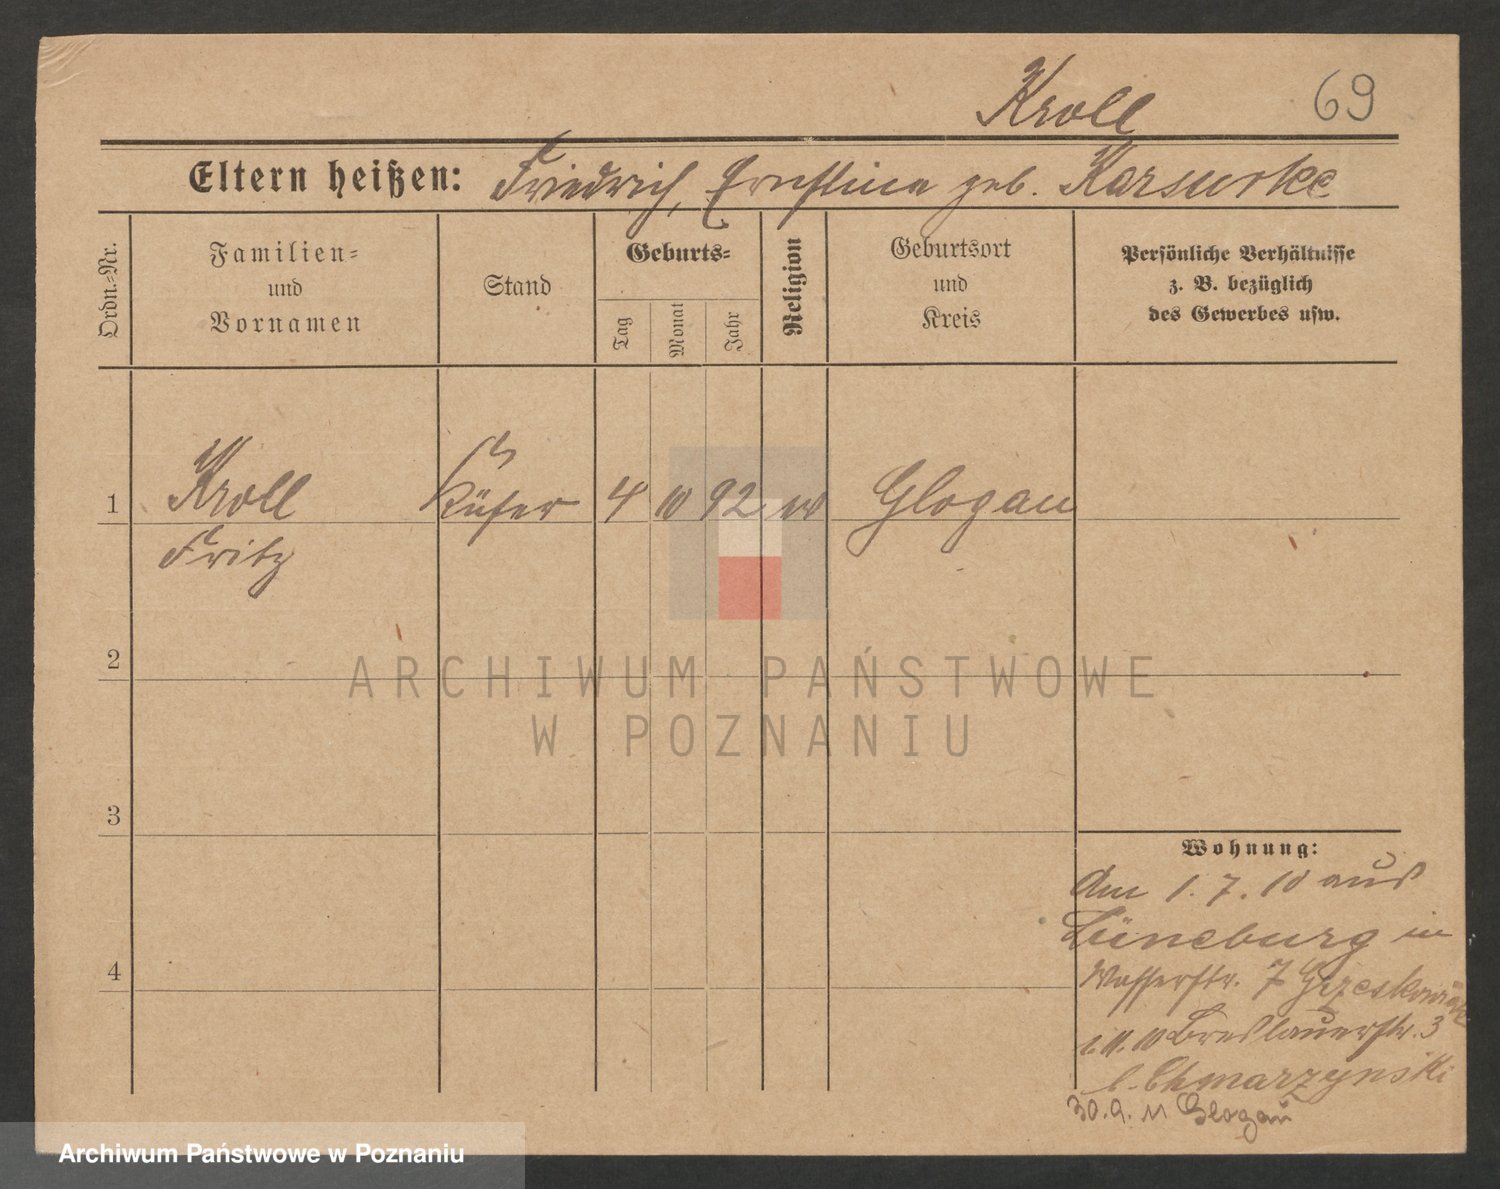 Kroll 69
Eltern heißen: Friedrich, Ernstine geb. Karsunke
Ordn.-Nr.
Familien-
und
Vornamen
Stand
Geburts-
Tag
Monat
Jahr
Religion
Geburtsort
und
Kreis
Persönliche Verhältnisse
z. B. bezüglich
des Gewerbes usw.
1 Kroll Küfer 4 10 92 Glogau
Fritz
2
3
4
Wohnung:
Am 1.7.10 aus
Lüneburg in
Wasserstr. 7 Grzeskowiak
1.11.10 Breslauerstr. 3
b. Chmarzynski
30.9.11 Glogau
ARCHIWUM PAŃSTWOWE
W POZNANIU
Archiwum Państwowe w Poznaniu